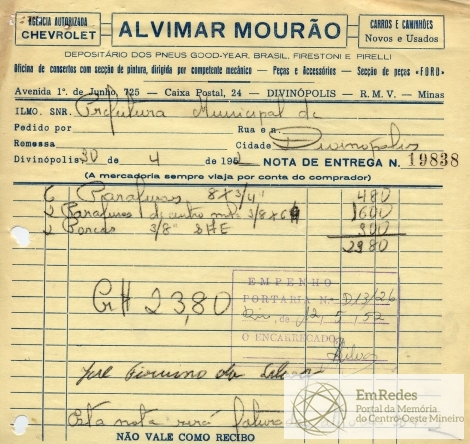 AGÊNCIA AUTORIZADA
CHEVROLET
ALVIMAR MOURÃO
CARROS E CAMINHÕES
Novos e Usados
DEPOSITÁRIO DOS PNEUS GOOD-YEAR, BRASIL, FIRESTONI E PIRELLI
Oficina de concertos com secção de pintura, dirigida por competente mecânico - Peças e Accessórios - Secção de peças «FORD»
Avenida 1º. de Junho, 725 - Caixa Postal, 24 - DIVINÓPOLIS - R. M. V. - Minas
ILMO. SNR. Prefeitura Municipal de
Pedido por Rua e n.
Remessa Cidade Divinópolis
Divinópolis, 30 de 4 de 1952 NOTA DE ENTREGA N. 19838
(A mercadoria sempre viaja por conta do comprador)
6 Parafusos 8 x 3/4" 480
2 Parafusos de centro 3/8 x 6 1600
2 Porcas 3/8" SAE 300
2380
Cr$ 23,80
EMPENHO
PORTARIA N. D13/26
de 5, 52
O ENCARREGADO
José da Silva
Esta nota será
NÃO VALE COMO RECIBO
EmRedes
Portal da Memória
do Centro-Oeste Mineiro